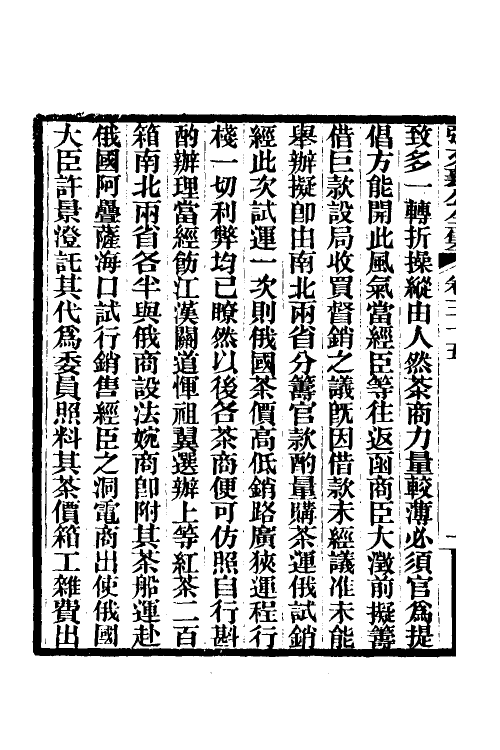 卷三十五
致多一轉折操縱由人然茶商力量較薄必須官爲提
倡方能開此風氣當經臣等往返函商臣大澂前擬籌
借巨款設局收買督銷之議旣因借款未經議准未能
舉辦擬卽由南北兩省分籌官款酌量購茶運俄試銷
經此次試運一次則俄國茶價高低銷路廣狹運程行
棧一切利弊均已瞭然以後各茶商便可仿照自行斟
酌辦理當經飭江漢關道惲祖翼選辦上等紅茶二百
箱南北兩省各半與俄商設法婉商卽附其茶船運赴
俄國阿疊薩海口試行銷售經臣之洞電商出使俄國
大臣許景澄託其代爲委員照料其茶價箱工雜費出